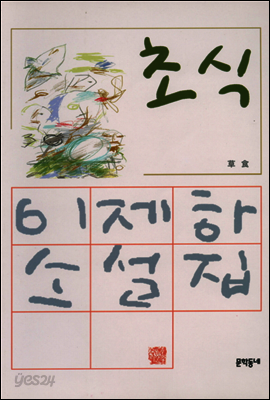 초식
草食
이제하
소설집
문학동네
yes24